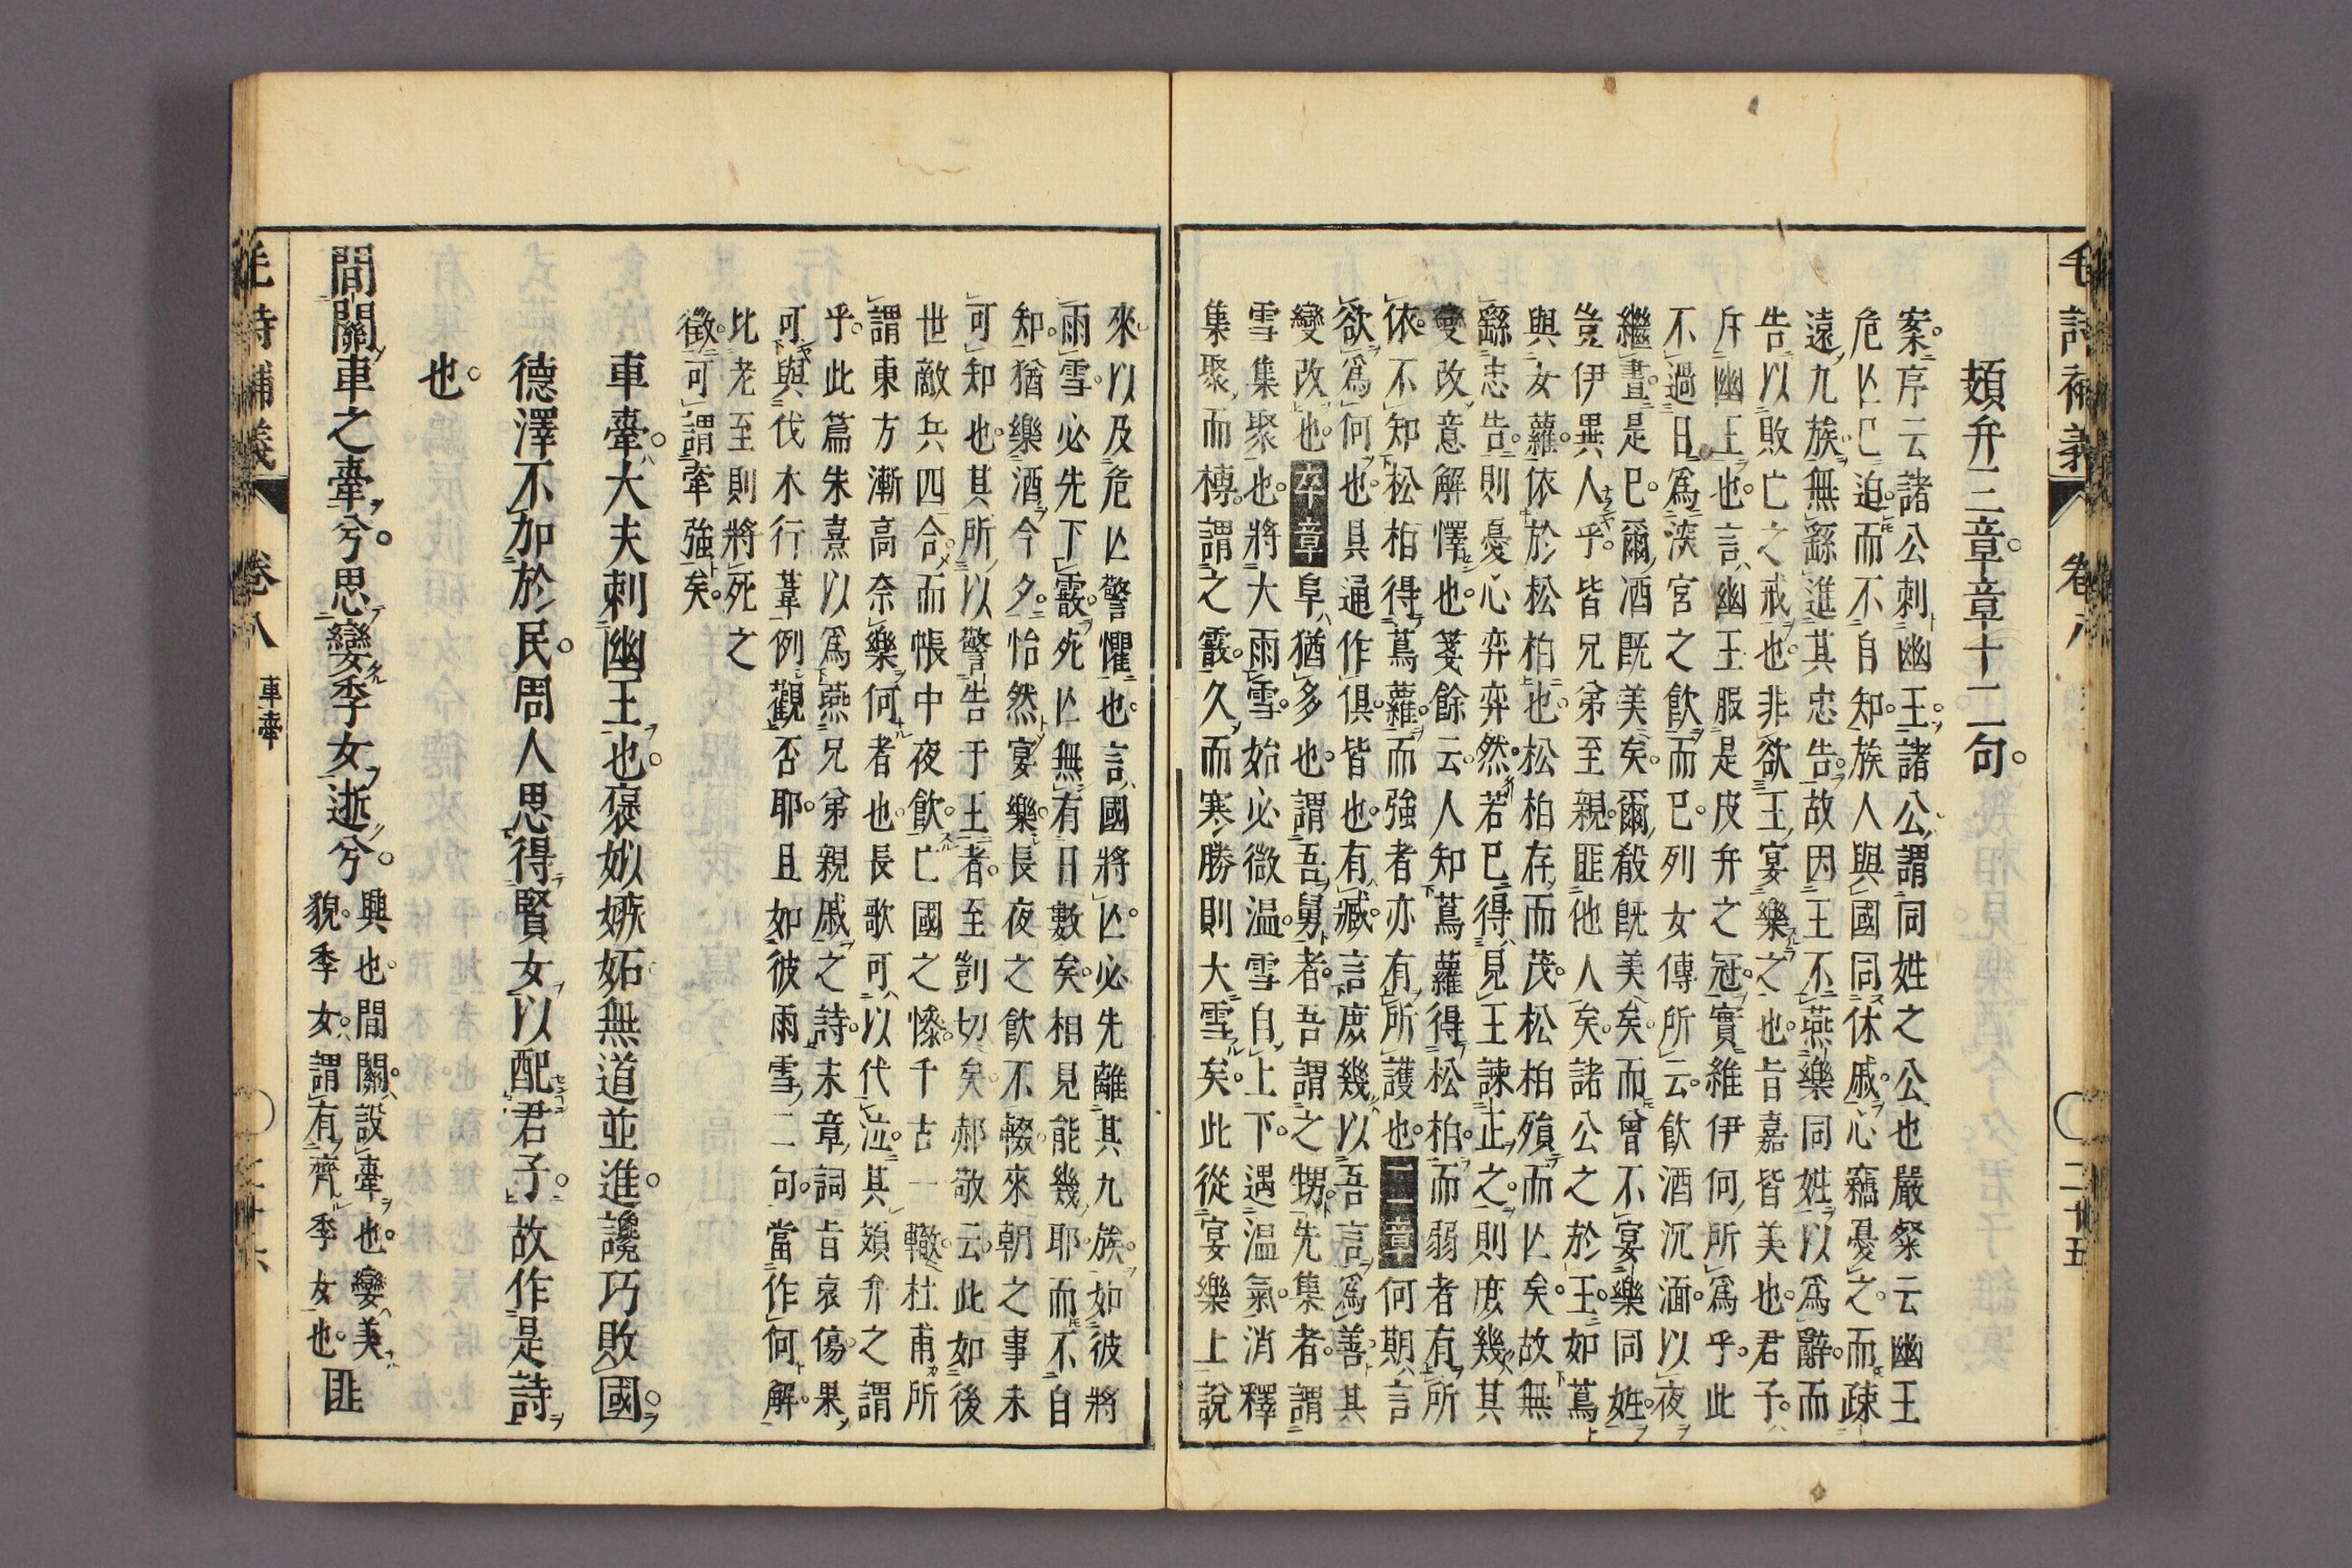 毛詩補義 卷八 二十五
頍弁三章章十二句。
案序云諸公刺幽王。諸公謂同姓之公也嚴粲云幽王
危亾已迫。而不自知。族人與國同休戚。心竊憂之。而疎
遠九族。無繇進其忠告。故因王不燕樂同姓。以爲辭。而
告以敗亡之戒也。非欲王宴樂之也。旨嘉皆美也。君子。
斥幽王也。言幽王服是皮弁之冠。實維伊何所爲乎。此
不過日爲淡宮之飮而已。列女傳所云。飮酒沉湎。以夜
繼晝。是已。爾酒旣美矣。爾殽旣美矣。而曾不宴樂同姓。
豈伊異人乎。皆兄弟至親。匪他人矣。諸公之於王。如蔦
與女蘿。依於松柏也。松柏存而茂。松柏殞而亾矣。故無
繇忠告。則憂心弈弈然。若已得見王諫正之。則庶幾其
變改意解懌也。箋餘云。人知蔦蘿得松柏。而弱者有所
依。不知松柏得蔦蘿。而強者亦有所護也。二章何期言
欲爲何也。具通作俱。皆也。有臧。言庶幾以吾言爲善。其
變改也。卒章阜猶多也。謂吾舅者。吾謂之甥。先集者。謂
雪集聚也。將大雨雪。始必微温。雪自上下。遇温氣。消釋
集聚而樽。謂之霰。久而寒勝則大雪矣。此從宴樂上說
來以及危亾警懼也。言國將亾。必先離其九族。如彼將
雨雪。必先下霰。死亾無有日數矣。相見能幾耶。而不自
知。猶樂酒今夕。怡然宴樂。長夜之飮不輟。來朝之事未
可知也。其所以警告于王者。至剴切矣。郝敬云。此如後
世敵兵四合。而帳中夜飮。亡國之慘。千古一轍。杜甫所
謂東方漸高奈樂何者也。長歌可以代泣。其頍弁之謂
乎。此篇朱熹以爲燕兄弟親戚之詩。末章詞旨哀傷。果
可與伐木行葦例觀否耶。且如彼雨雪二句。當作何解。
比老至則將死之
徴。可謂牽強矣。
車舝。大夫刺幽王也。褒姒嫉妬無道並進。讒巧敗國。
德澤不加於民。周人思得賢女以配君子。故作是詩
也。
間關車之舝兮。思孌季女逝兮。興也。間關。設舝也。孌美
貌。季女。謂有齊季女也。匪
毛詩補義 卷八 車舝 二十六